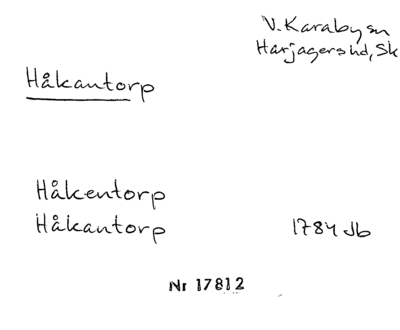 V. Karaby sn
Harjagers hd, Sk
Håkantorp
Håkentorp
Håkantorp 1784 Jb
Nr 17812